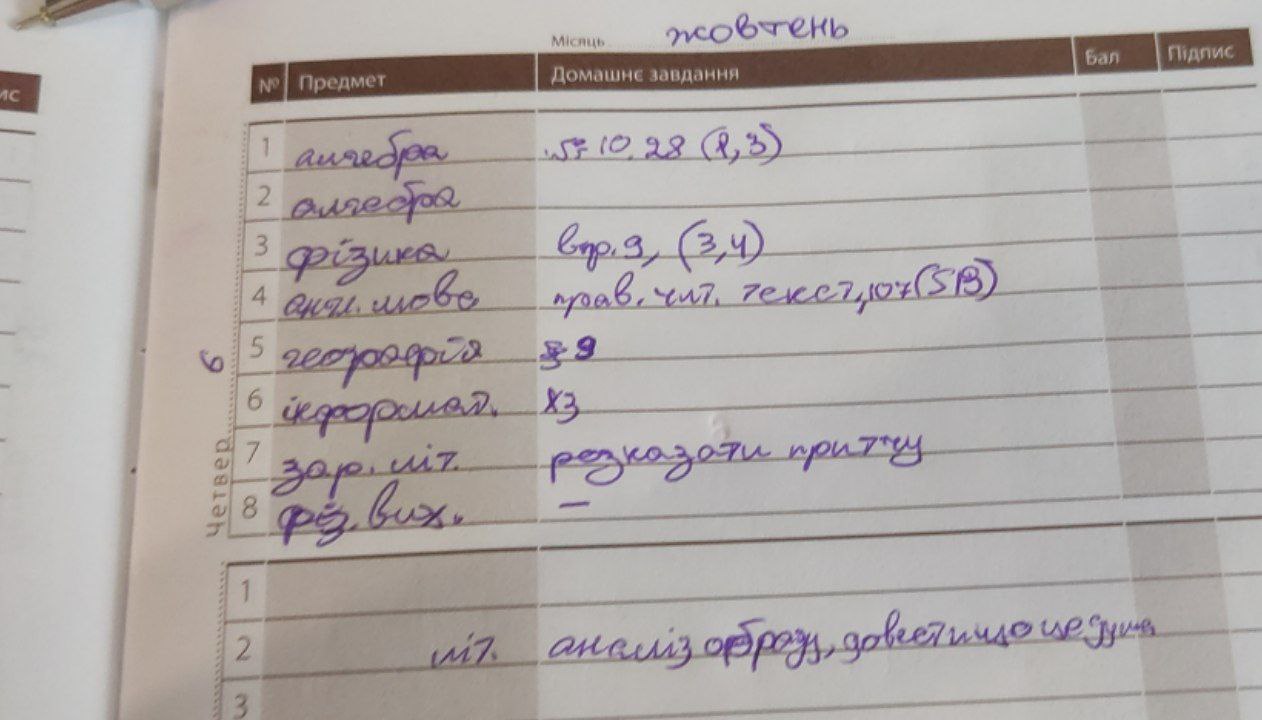 ис
Місяць жовтень
№ Предмет Домашнє завдання Бал Підпис
1 алгебра № 10.28 (1,3)
2 алгебра
3 фізика впр. 9, (3,4)
4 англ. мова прав. чит. текст, 107 (5B)
5 географія § 9
6 інформат. хз
7 зар. літ. розказати притчу
8 фіз. вих. —
Четвер 6
1
2 літ. аналіз образу, довести що це душа
3